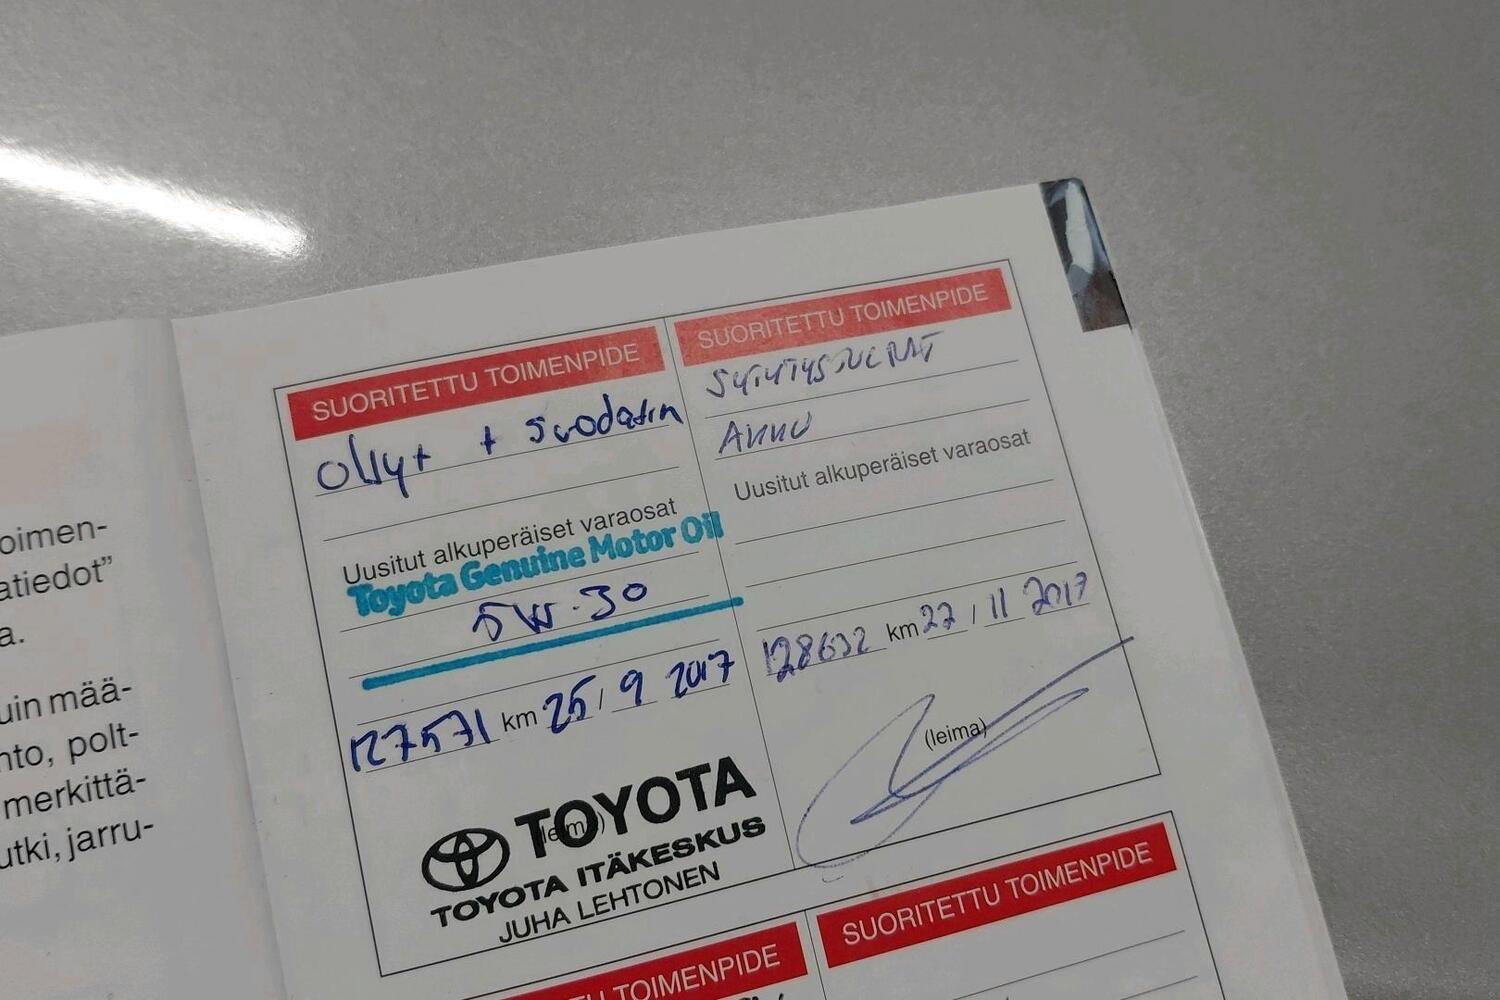 oimen-
atiedot”
a.
uin mää-
nto, polt-
merkittä-
utki, jarru-
SUORITETTU TOIMENPIDE
Öljyt + suodatin
Uusitut alkuperäiset varaosat
Toyota Genuine Motor Oil
5W-30
127571 km 25 / 9 2017
(leima)
TOYOTA
TOYOTA ITÄKESKUS
JUHA LEHTONEN
SUORITETTU TOIMENPIDE
SYTYTYSTULPAT
AKKU
Uusitut alkuperäiset varaosat
128632 km 22 / 11 2017
(leima)
SUORITETTU TOIMENPIDE
SUORITETTU TOIMENPIDE